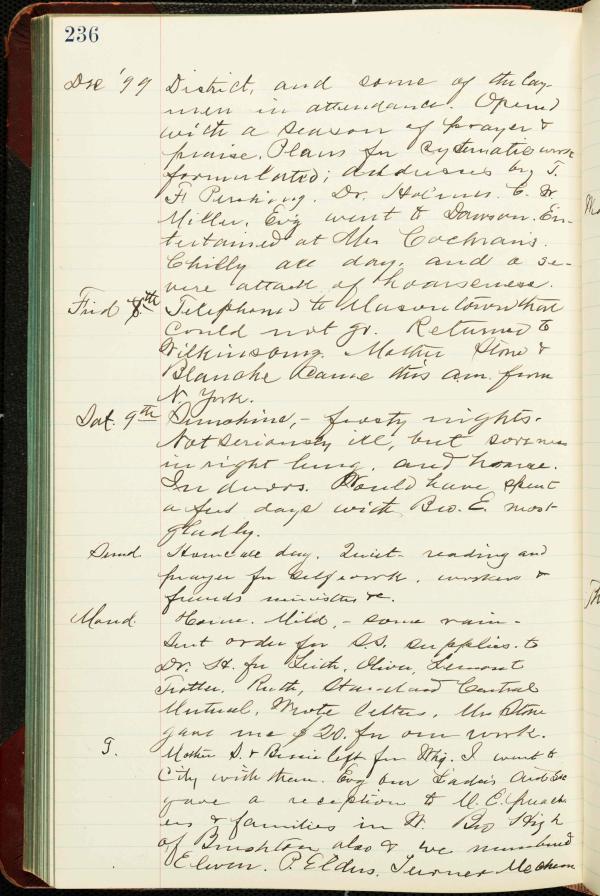 236
Dec '99 District, and some of the lay-
men in attendance. Opened
with a season of prayer &
praise. Plans for systematic work
formulated; addresses by T.
F. Pershing. Dr. Holmes. C. W.
Miller, Ev'g went to Dawson. En-
tertained at Mrs Cochran's.
Chilly all day, and a se-
vere attack of hoarseness.
Frid 8th Telephoned to Masontown that
could not go. Returned to
Wilkinsburg. Mother Stone &
Blanche came this a.m. from
N. York.
Sat. 9th Sunshine, - frosty nights.
Not seriously ill, but soreness
in right lung, and hoarse.
In doors. Would have spent
a few days with Bro. E. most
gladly.
Sund. Home all day. Quiet - reading and
prayer for self & work, workers &
friends ministers &c.
Mond. Home. Mild, - some rain -
Sent order for S.S. supplies to
Dr. H. for Leith, Oliver, Lemont
Trotter. Ruth, Standard Central
Mutual. Wrote letters. Mrs Stone
gave me $20. for our work.
T. Mother S. & Bessie left for Whg. I went to
City with them. Ev'g our Ladies Aid Soc
gave a reception to M. E. preach
ers & families in W. Bro High
of Brushton also & we numbered
Eleven. P. Elders, Turner Mechem